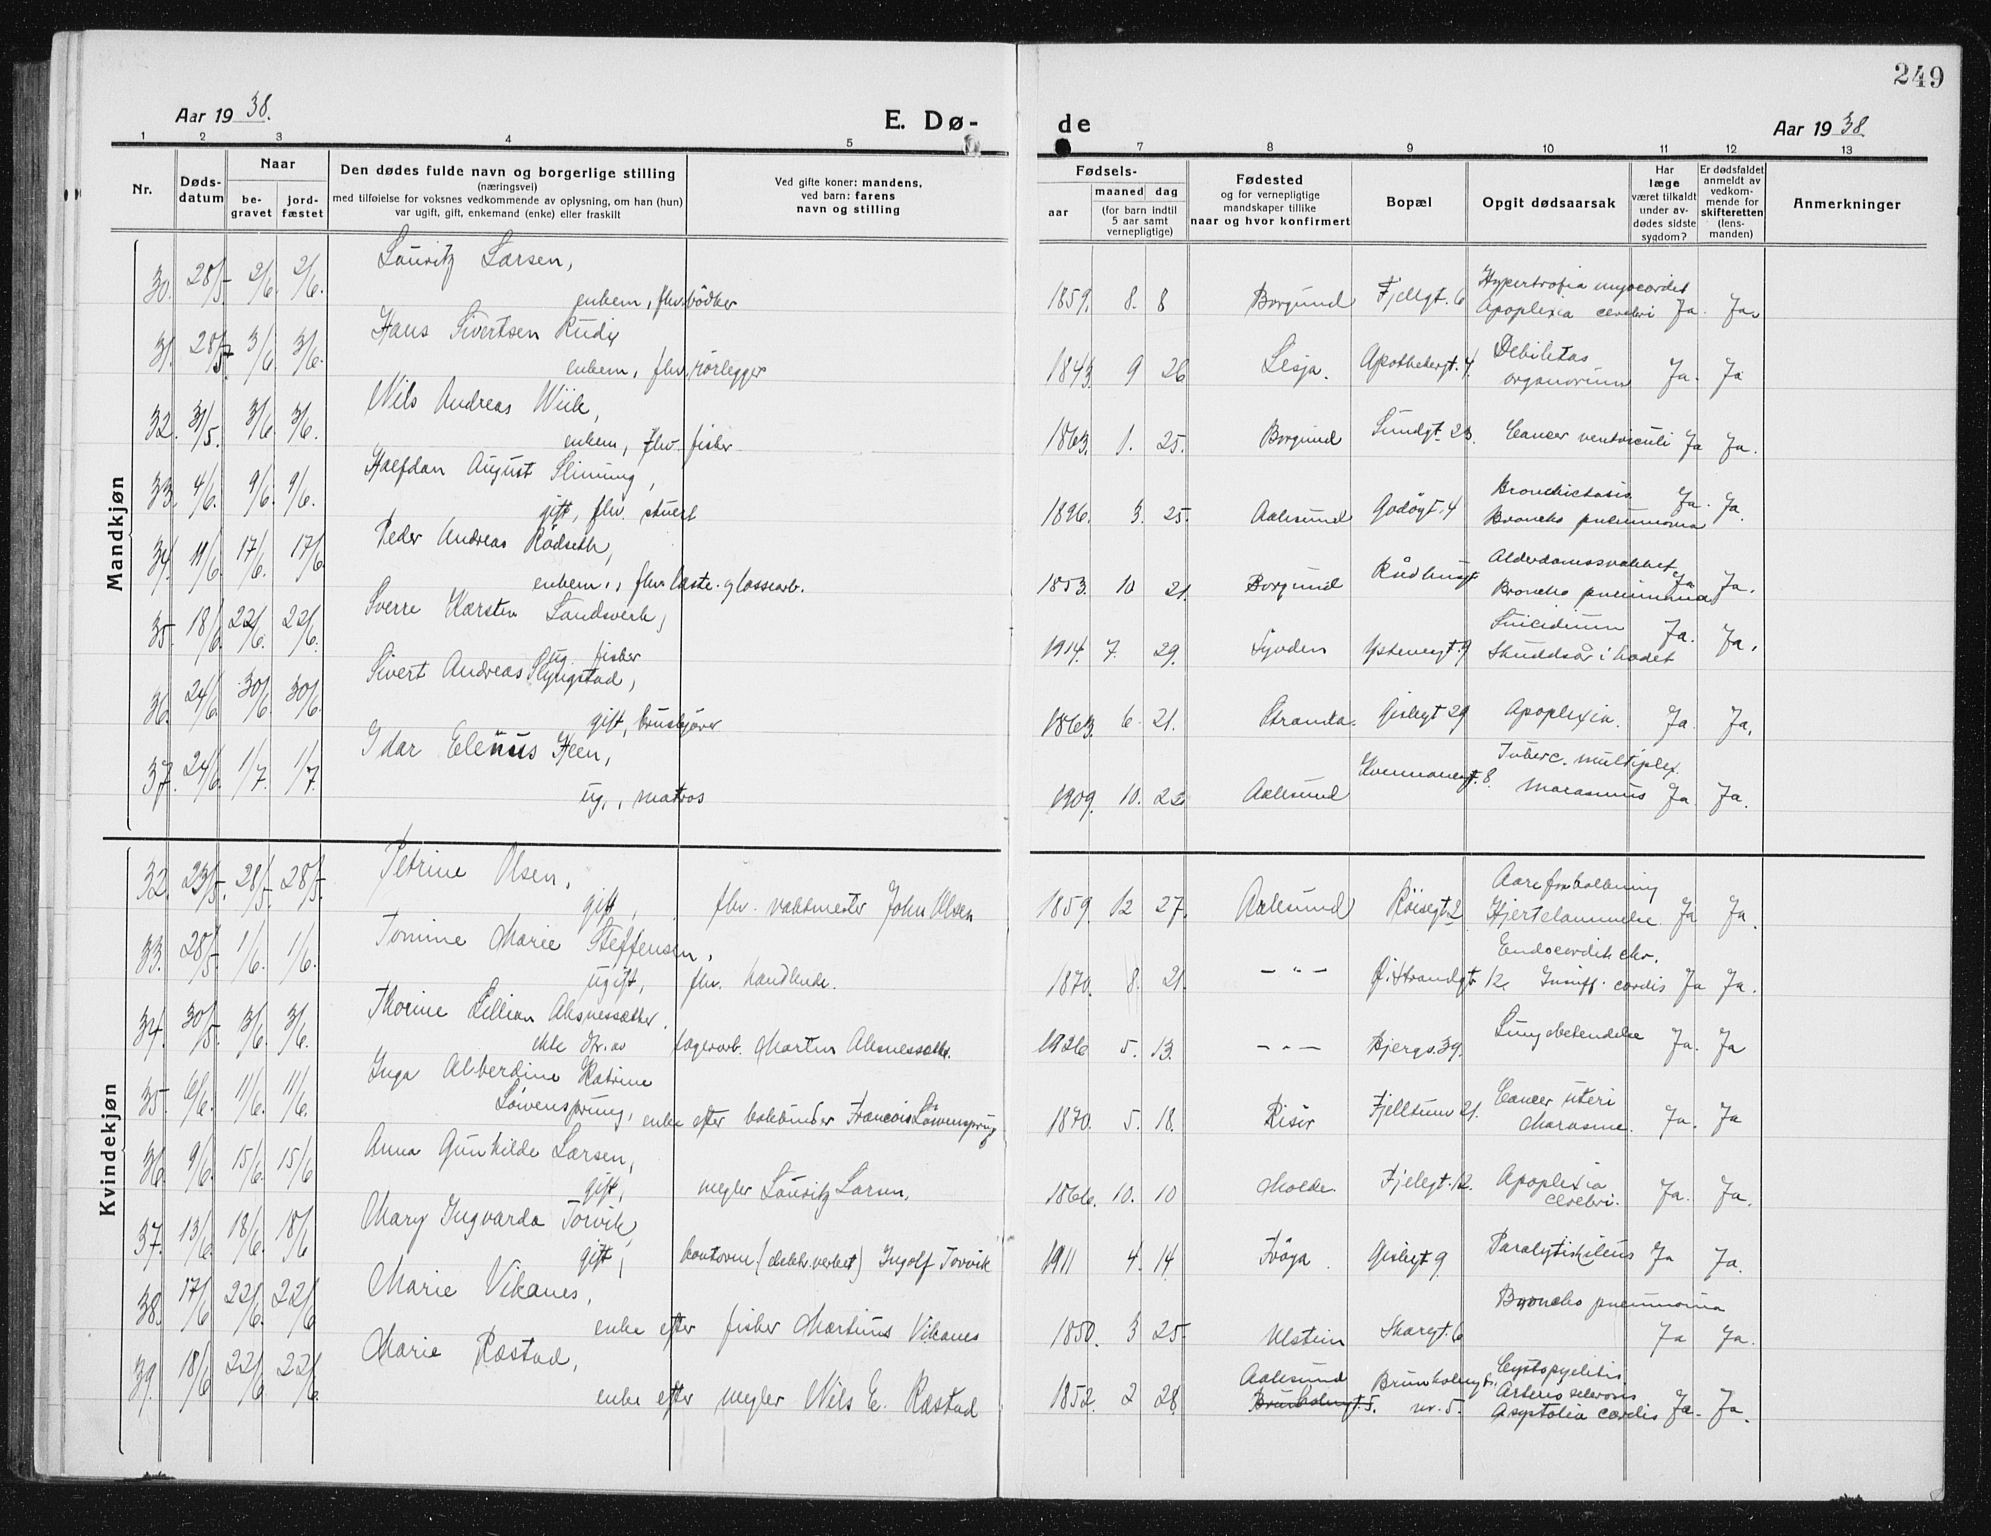 249
Aar 1938.
E. Dø-
de
Aar 1938.
1 2 3 4 5 7 8 9 10 11 12 13
Nr.
Døds-
datum
Naar
be-
gravet
jord-
fæstet
Den dødes fulde navn og borgerlige stilling
(næringsvei)
med tilføielse for voksnes vedkommende av oplysning, om han (hun)
var ugift, gift, enkemand (enke) eller fraskilt
Ved gifte koner: mandens,
ved barn: farens
navn og stilling
Fødsels-
aar
maaned dag
(for barn indtil
5 aar samt
vernepligtige)
Fødested
og for vernepligtige
mandskaper tillike
naar og hvor konfirmert
Bopæl
Opgit dødsaarsak
Har
læge
været tilkaldt
under av-
dødes sidste
sygdom?
Er dødsfaldet
anmeldt av
vedkom-
mende for
skifteretten
(lens-
manden)
Anmerkninger
Mandkjøn
30. 28/5 2/6. 2/6. Lauritz Larsen,
enkem, fhv. bødker 1859. 8. 8 Borgund Fjellgt. 6 Hypertrofia myocardit
Apoplexia cerebri Ja. Ja.
31. 28/5. 3/6. 3/6. Hans Sivertsen Rudi
enkem, fhv. rørlegger 1843. 9 26 Lesja. Apothekergt. 4. Debilitas
organorium Ja. Ja
32. 31/5. 3/6. 3/6. Nils Andreas Wiik,
enkem, fhv. fisker 1863. 1. 25. Borgund Sundgt. 23. Cancer ventriculi Ja Ja.
33. 4/6. 9/6. 9/6. Halfdan August Slinning,
gift, fhv. stuert 1896. 3. 25. Aalesund Godøgt. 4 Bronchictasis
Broncho pneumonia Ja. Ja.
34. 11/6. 17/6. 17/6. Peder Andreas Rødseth,
enkem., fhv. laste- og lossearb. 1853. 10 21. Borgund Rådhusgt. Alderdomssvakhet
Broncho pneumonia Ja Ja.
35. 18/6. 22/6. 22/6. Sverre Karsten Landsverk,
ug. fisker 1914. 7. 29. Syvden Ystenesgt. 9 Suicidium
Skuddsår i hodet Ja. Ja.
36. 24/6. 30/6. 30/6. Sivert Andreas Slyngstad,
gift, bruskjører 1863. 6. 21. Stranda. Gislegt 29 Apoplexia. Ja. Ja.
37. 24/6. 1/7. 1/7. Idar Elenus Heen,
ug., matros 1909. 10. 22 Aalesund 8. Tuberc. multiplex.
Marasmus Ja. Ja.
Kvindekjøn
32. 23/5. 28/5. 28/5. Petrine Olsen,
gift, fhv. vaktmester John Olsen 1859. 12 27. Aalesund Røisegt. 2 Aareforkalkning
Hjertelammelse Ja Ja.
33. 28/5. 1/6. 1/6. Tomine Marie Steffensen,
ugift, fhv. handlende. 1870. 8. 21. — " — Ø. Strandgt. 12. Endocardit chr.
Insuff. cordis Ja Ja.
34. 30/5. 3/6. 3/6. Thorine Lillian Aksnessæther.
ekte dtr. av lagerarb. Martin Aksnessæth. 1926 5. 13. — " — Bjergs. 39. Lungebetendelse Ja. Ja
35. 6/6. 11/6. 11/6. Inga Alberdine Katrine
Løwensprung, enke efter bokbinder Francois Løwensprung 1870. 5. 18. Risør Fjelltunv 21. Cancer uteri
Marasme. Ja. Ja
36. 9/6. 15/6. 15/6 Anna Gunhilde Larsen,
gift, megler Lauritz Larsen. 1866. 10. 10 Molde. Fjellgt. 12. Apoplexia
cerebri. Ja. Ja.
37. 13/6. 18/6. 18/6 Mary Ingvarda Torvik,
gift, kontorm. (elektr. verket) Ingolf Torvik 1911 4. 14. Frøya. Gislegt 9. Paralytisk ileus Ja Ja.
38. 17/6 22/6. 22/6 Marie Vikanes,
enke efter fisker Martinus Vikanes 1850. 3 25. Ulstein Skaregt. 6 Broncho pneumonia Ja Ja.
39. 18/6 22/6. 22/6. Marie Røstad,
enke efter megler Nils E. Røstad 1852. 2 28. Aalesund
Brunholmgt. 5. Brunholmgt.
nr. 5. Cystopyelitis
Arterio sclerosis
Asystolia cordis Ja. Ja.